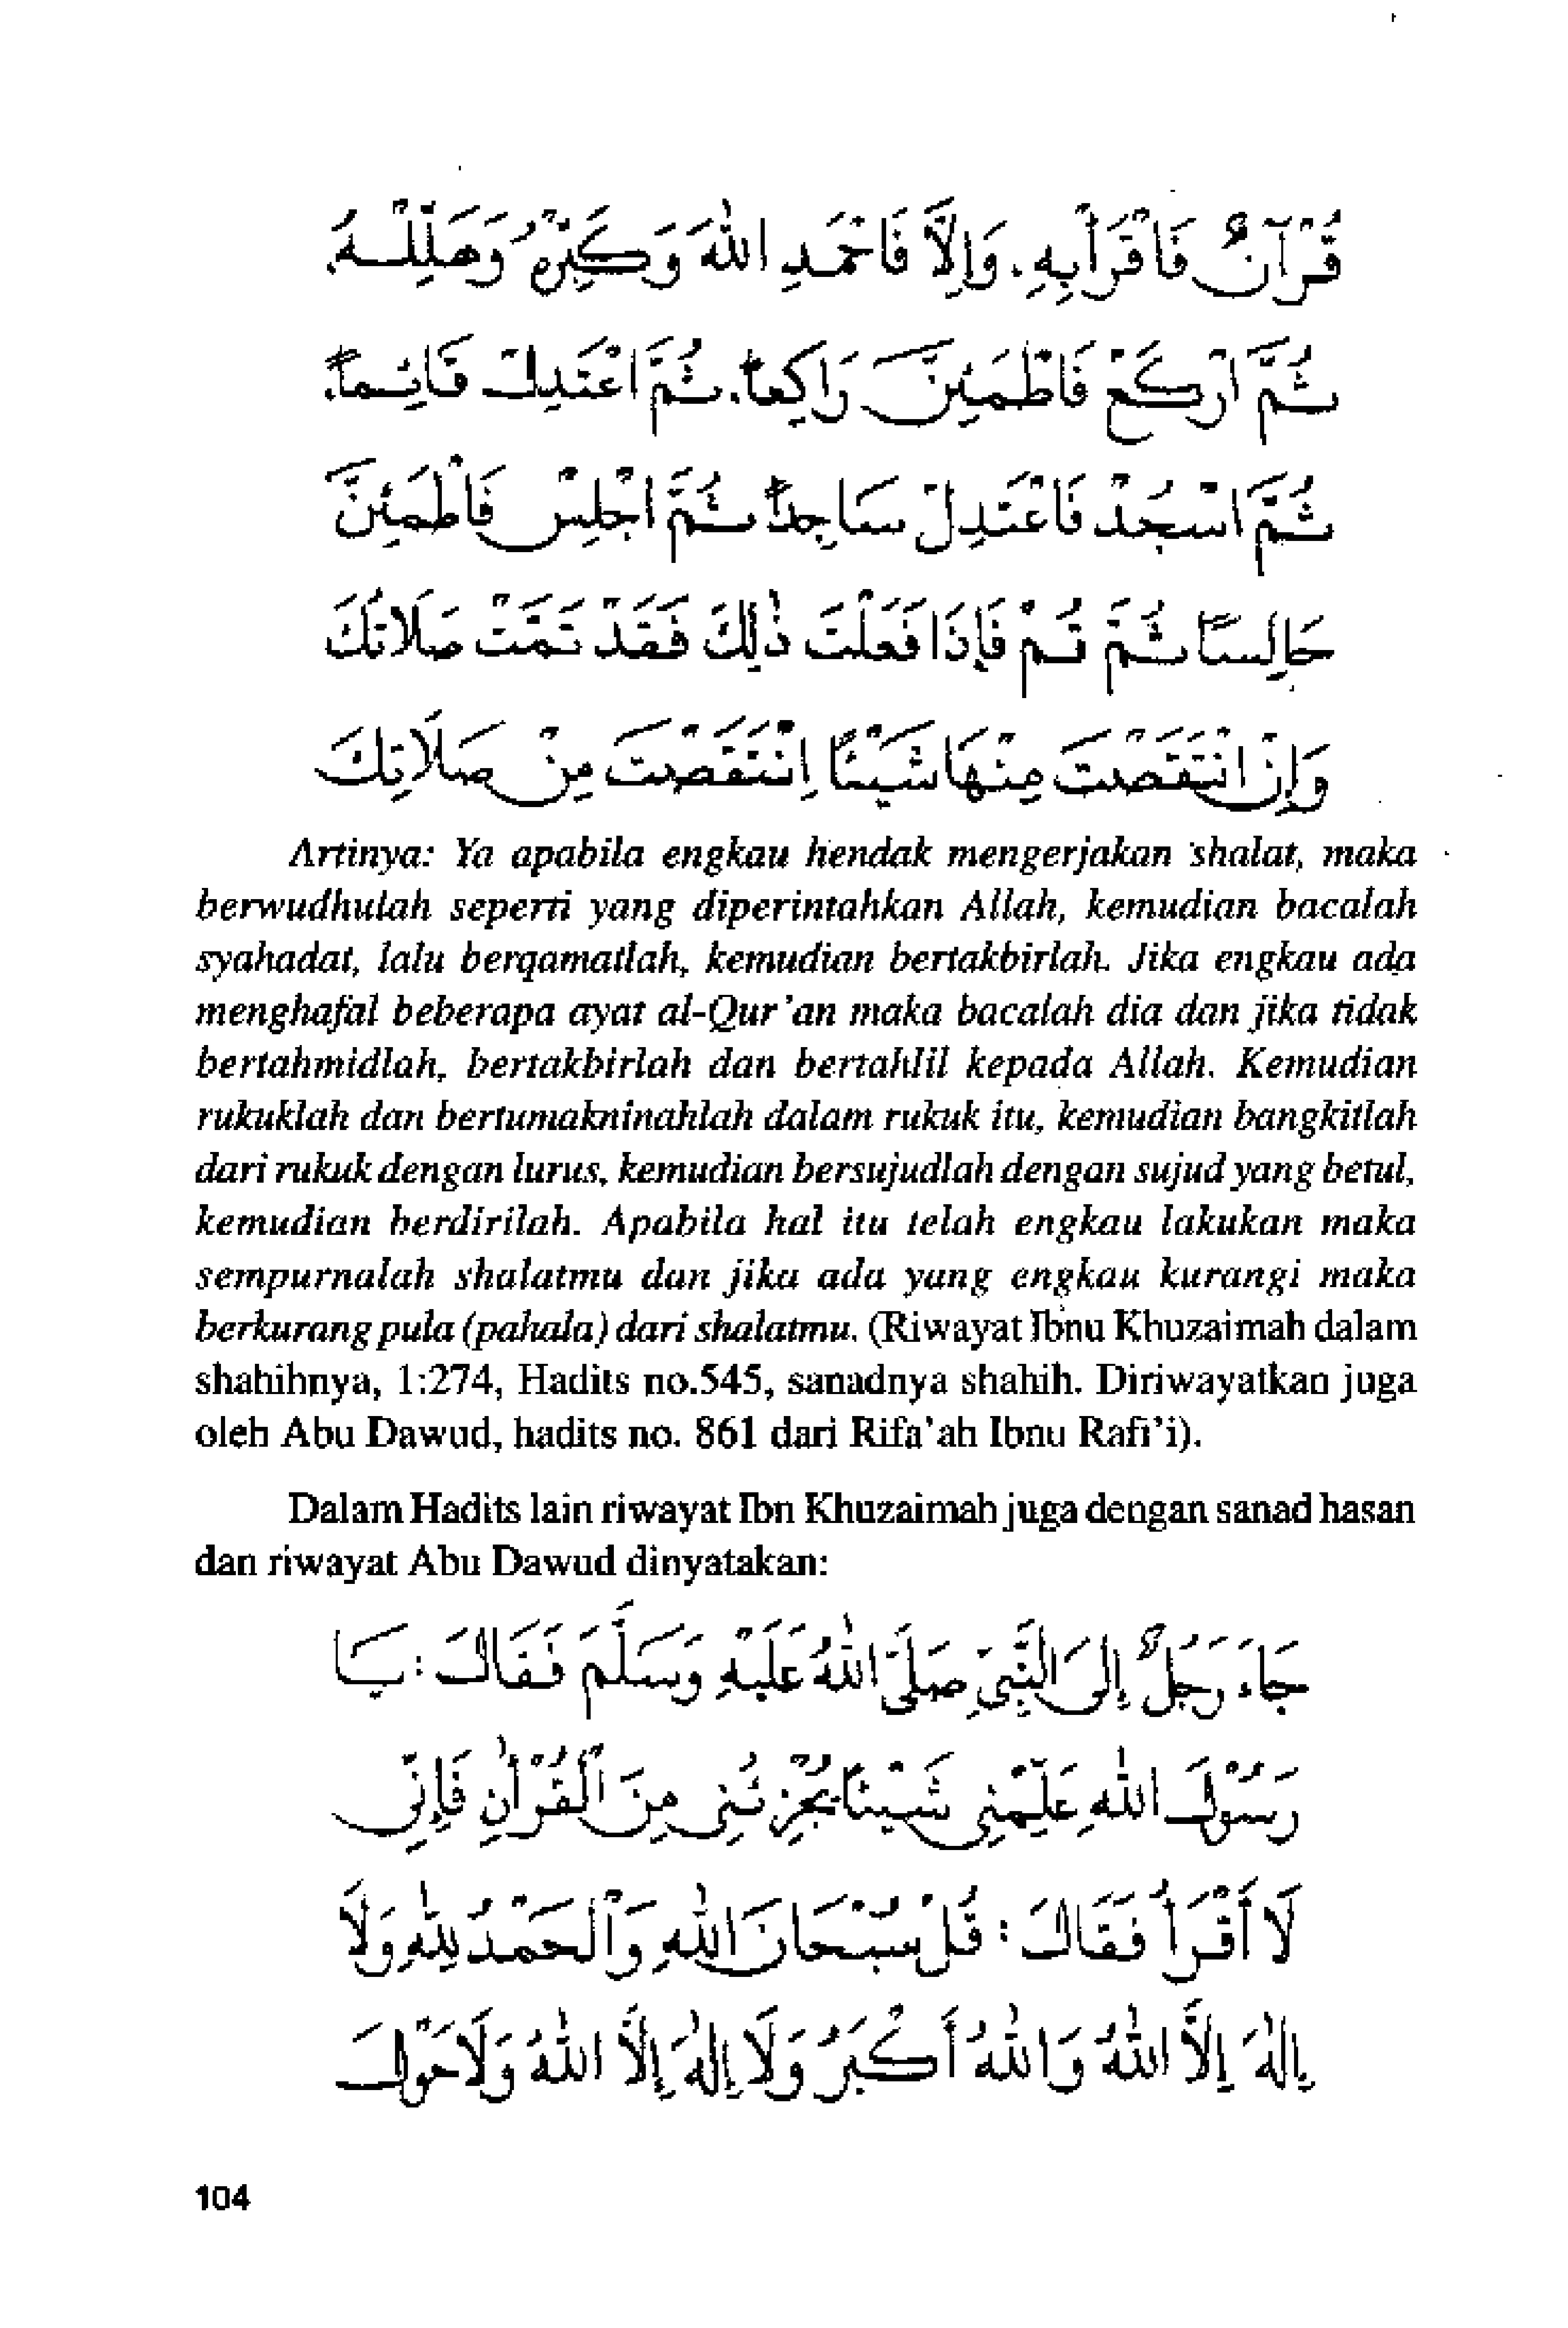 قُرْآنٌ فَاقْرَأْ بِهِ. وَإِلَّا فَاحْمَدِ اللهَ وَكَبِّرْهُ وَهَلِّلْهُ.
ثُمَّ ارْكَعْ فَاطْمَئِنَّ رَاكِعًا. ثُمَّ اعْتَدِلْ قَائِمًا.
ثُمَّ اسْجُدْ فَاعْتَدِلْ سَاجِدًا ثُمَّ اجْلِسْ فَاطْمَئِنَّ
جَالِسًا ثُمَّ قُمْ فَإِذَا فَعَلْتَ ذٰلِكَ فَقَدْ تَمَّتْ صَلَاتُكَ
وَإِنْ انْتَقَصْتَ مِنْهَا شَيْئًا اِنْتَقَصْتَ مِنْ صَلَاتِكَ
Artinya: Ya apabila engkau hendak mengerjakan shalat, maka
berwudhulah seperti yang diperintahkan Allah, kemudian bacalah
syahadat, lalu berqamatlah, kemudian bertakbirlah. Jika engkau ada
menghafal beberapa ayat al-Qur'an maka bacalah dia dan jika tidak
bertahmidlah, bertakbirlah dan bertahlil kepada Allah. Kemudian
rukuklah dan bertumakninahlah dalam rukuk itu, kemudian bangkitlah
dari rukuk dengan lurus, kemudian bersujudlah dengan sujud yang betul,
kemudian berdirilah. Apabila hal itu telah engkau lakukan maka
sempurnalah shalatmu dan jika ada yang engkau kurangi maka
berkurang pula (pahala) dari shalatmu. (Riwayat Ibnu Khuzaimah dalam
shahihnya, 1:274, Hadits no.545, sanadnya shahih. Diriwayatkan juga
oleh Abu Dawud, hadits no. 861 dari Rifa'ah Ibnu Rafi'i).
Dalam Hadits lain riwayat Ibn Khuzaimah juga dengan sanad hasan
dan riwayat Abu Dawud dinyatakan:
جَاءَ رَجُلٌ إِلَى النَّبِيِّ صَلَّى اللهُ عَلَيْهِ وَسَلَّمَ فَقَالَ: يَا
رَسُوْلَ اللهِ عَلِّمْنِى شَيْئًا يُجْزِئُنِى مِنَ الْقُرْاٰنِ فَإِنِّى
لَا أَقْرَأُ فَقَالَ: قُلْ سُبْحَانَ اللهِ وَالْحَمْدُ لِلّٰهِ وَلَا
إِلٰهَ إِلَّا اللهُ وَاللهُ أَكْبَرُ وَلَا إِلٰهَ إِلَّا اللهُ وَلَا حَوْلَ
104